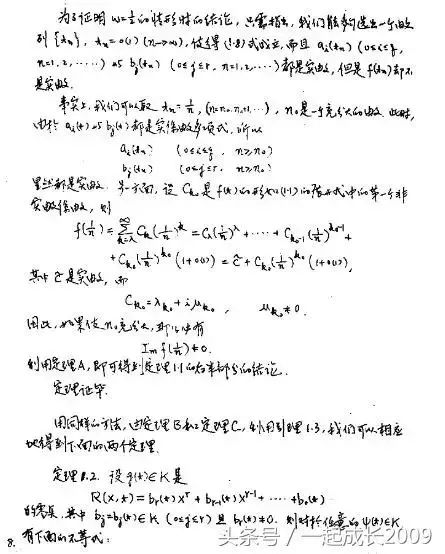 为了证明 ω=½ 的情形时的结论,只需指出,我们能构造出一个数
列 {x_n}, x_n=o(1) (n→∞), 使得 (1.8) 式成立,而且 a_i(x_n) (0≤i≤q,
n=1,2,……) 与 b_j(x_n) (0≤j≤r, n=1,2,…) 都是实数,但是 f(x_n) 却不
是实数.
事实上,我们可以取 x_n=1/n, (n=n₀,n₀+1,…), n₀是一个充分大的数. 此时,
由于 a_i(x) 与 b_j(x) 都是实系数多项式,所以
a_i(x_n) (0≤i≤q, n≥n₀)
b_j(x_n) (0≤j≤r, n≥n₀)
显然都是实数. 另一方面,设 C_{k₀} 是 f(x) 的形如(1.1)的展开式中的第一个非
实数系数,则
f(1/n) = ∑_{k=λ}^∞ C_k(1/n)^k = C_λ(1/n)^λ + ⋯ + C_{k₀-1}(1/n)^{k₀-1} +
+ C_{k₀}(1/n)^{k₀}(1+o(1)) = c̃ + C_{k₀}(1/n)^{k₀}(1+o(1)),
其中 c̃ 是实数,而
C_{k₀} = λ_{k₀} + iμ_{k₀}, μ_{k₀}≠0.
因此,如果使 n₀ 充分大,那么必有
Im f(1/n) ≠ 0.
利用定理A,即可得到定理1.1的后半部分的结论.
定理证毕.
用同样的方法,由定理B和定理C,利用引理1.3,我们可以相应
地得到下面的两个定理.
定理1.2. 设 g(x)∈K 是
R(x,X) = b_r(x)X^r + b_{r-1}(x)X^{r-1} + ⋯ + b₀(x)
的零点,其中 b_j=b_j(x)∈K (0≤j≤r) 且 b_r(x)≠0. 则对于任意的 ψ(x)∈K
有下面的不等式:
8.
头条号 / 一起成长2009